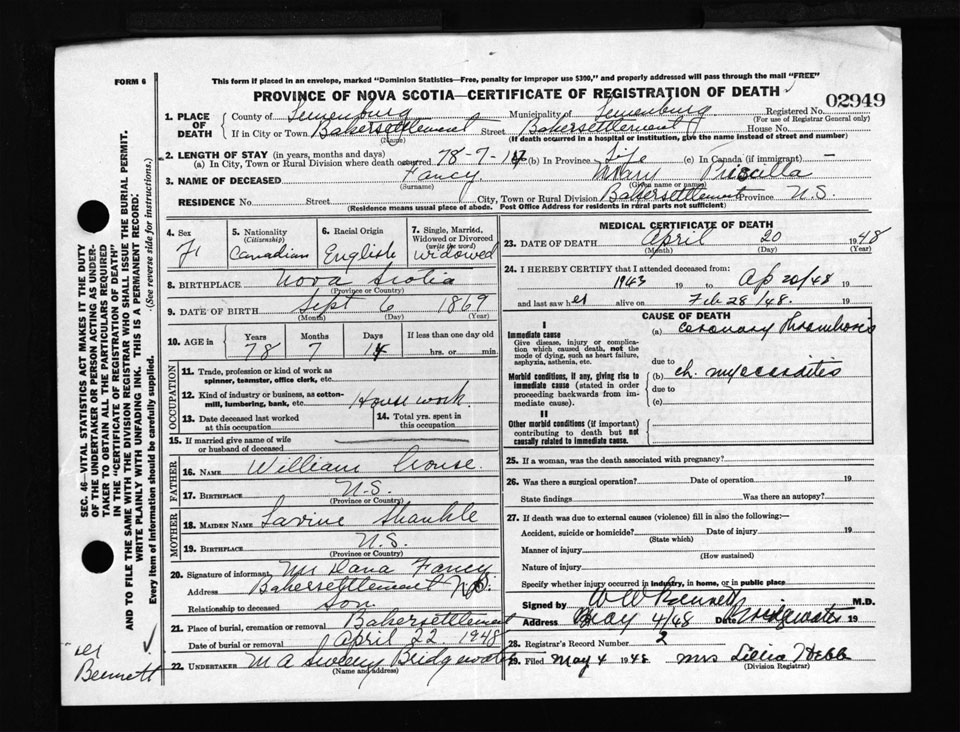 FORM 6
This form if placed in an envelope, marked "Dominion Statistics—Free, penalty for improper use $300," and properly addressed will pass through the mail "FREE"
PROVINCE OF NOVA SCOTIA—CERTIFICATE OF REGISTRATION OF DEATH
02949
1. PLACE OF DEATH
County of Lunenburg Municipality of Lunenburg Registered No.
(For use of Registrar General only)
If in City or Town Bakersettlement Street Bakersettlement House No.
(Name) (If death occurred in a hospital or institution, give the name instead of street and number)
2. LENGTH OF STAY (in years, months and days)
(a) In City, Town or Rural Division where death occurred 78-7-14 (b) In Province Life (c) In Canada (if immigrant) —
3. NAME OF DECEASED Fancy Mary Priscilla
(Surname) (Given name or names)
RESIDENCE No. Street City, Town or Rural Division Bakersettlement Province N.S.
(Residence means usual place of abode. Post Office Address for residents in rural parts not sufficient)
4. Sex
F
5. Nationality
(Citizenship)
Canadian
6. Racial Origin
English
7. Single, Married, Widowed or Divorced
(write the word)
Widowed
8. BIRTHPLACE Nova Scotia
(Province or Country)
9. DATE OF BIRTH Sept 6 1869
(Month) (Day) (Year)
10. AGE in
Years Months Days If less than one day old
78 7 14 hrs. or min.
OCCUPATION
11. Trade, profession or kind of work as spinner, teamster, office clerk, etc.
12. Kind of industry or business, as cotton-mill, lumbering, bank, etc. House work
13. Date deceased last worked at this occupation
14. Total yrs. spent in this occupation
15. If married give name of wife or husband of deceased
FATHER
16. NAME William Crouse
17. BIRTHPLACE N.S.
(Province or Country)
MOTHER
18. MAIDEN NAME Lavine Shankle
19. BIRTHPLACE N.S.
(Province or Country)
20. Signature of informant Mr Dana Fancy
Address Bakersettlement N.S.
Relationship to deceased Son
21. Place of burial, cremation or removal Bakersettlement
Date of burial or removal April 22 1948
22. UNDERTAKER M A Sweeny Bridgewater
(Name and address)
MEDICAL CERTIFICATE OF DEATH
23. DATE OF DEATH April 20 1948
(Month) (Day)
24. I HEREBY CERTIFY that I attended deceased from:
1943 19 to Ap 20/48 19
and last saw her alive on Feb 28/48. 19
CAUSE OF DEATH
I
Immediate cause
Give disease, injury or complication which caused death, not the mode of dying, such as heart failure, asphyxia, asthenia, etc.
(a) Coronary thrombosis
due to
Morbid conditions, if any, giving rise to immediate cause (stated in order proceeding backwards from immediate cause).
(b) ch. myocarditis
due to
(c)
II
Other morbid conditions (if important) contributing to death but not causally related to immediate cause.
25. If a woman, was the death associated with pregnancy?
26. Was there a surgical operation? Date of operation 19
State findings Was there an autopsy?
27. If death was due to external causes (violence) fill in also the following:
Accident, suicide or homicide? Date of injury 19
(State which)
Manner of injury
(How sustained)
Nature of injury
Specify whether injury occurred in industry, in home, or in public place
Signed by W W Bennett M.D.
Address May 4/48 Date Bridgewater 19
28. Registrar's Record Number 2
29. Filed May 4 1948 Mrs Webb
(Division Registrar)
SEC. 46—VITAL STATISTICS ACT MAKES IT THE DUTY
OF THE UNDERTAKER OR PERSON ACTING AS UNDERTAKER TO OBTAIN ALL THE PARTICULARS REQUIRED
IN THE "CERTIFICATE OF REGISTRATION OF DEATH"
AND TO FILE THE SAME WITH THE DIVISION REGISTRAR WHO SHALL ISSUE THE BURIAL PERMIT.
WRITE PLAINLY WITH UNFADING INK. THIS IS A PERMANENT RECORD.
Every item of information should be carefully supplied. (See reverse side for instructions.)
Bennett